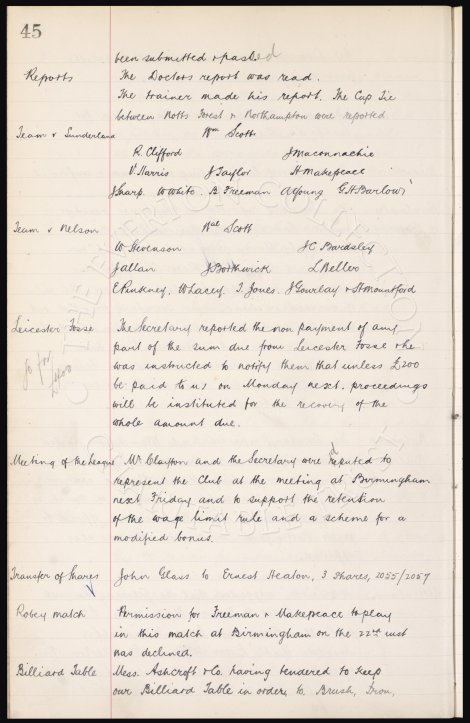 45
been submitted & passed
Reports The Doctors report was read.
The trainer made his report. The Cup Tie
between Notts Forest & Northampton were reported
Team v Sunderland Wm Scott
R. Clifford J Maconnachie
V Harris J Taylor H Makepeace
J Sharp. W White. B. Freeman A Young G. H. Barlow
Team v Nelson Wal Scott
W Stevenson J C Bardsley
J allan J Borthwick L Weller
E Pinkney, W Lacey, T Jones. J Gourlay & H Mountford
Leicester Fosse The Secretary reported the non payment of any
part of the sum due from Leicester Fosse & he
was instructed to notify them that unless £200
be paid to us on Monday next. proceedings
will be instituted for the recovery of the
whole amount due.
go for
£400
Meeting of the League Mr Clayton and the Secretary were deputed to
represent the Club at the meeting at Birmingham
next Friday and to support the retention
of the wage limit rule and a scheme for a
modified bonus.
Transfer of Shares John Glass to Ernest Heaton, 3 Shares, 2055/2057
Robey match Permission for Freeman & Makepeace to play
in this match at Birmingham on the 22nd inst
was declined.
Billiard Table Mess. Ashcroft & Co. having tendered to keep
our Billiard Table in order, to Brush, Iron,
THE EVERTON COLLECTION